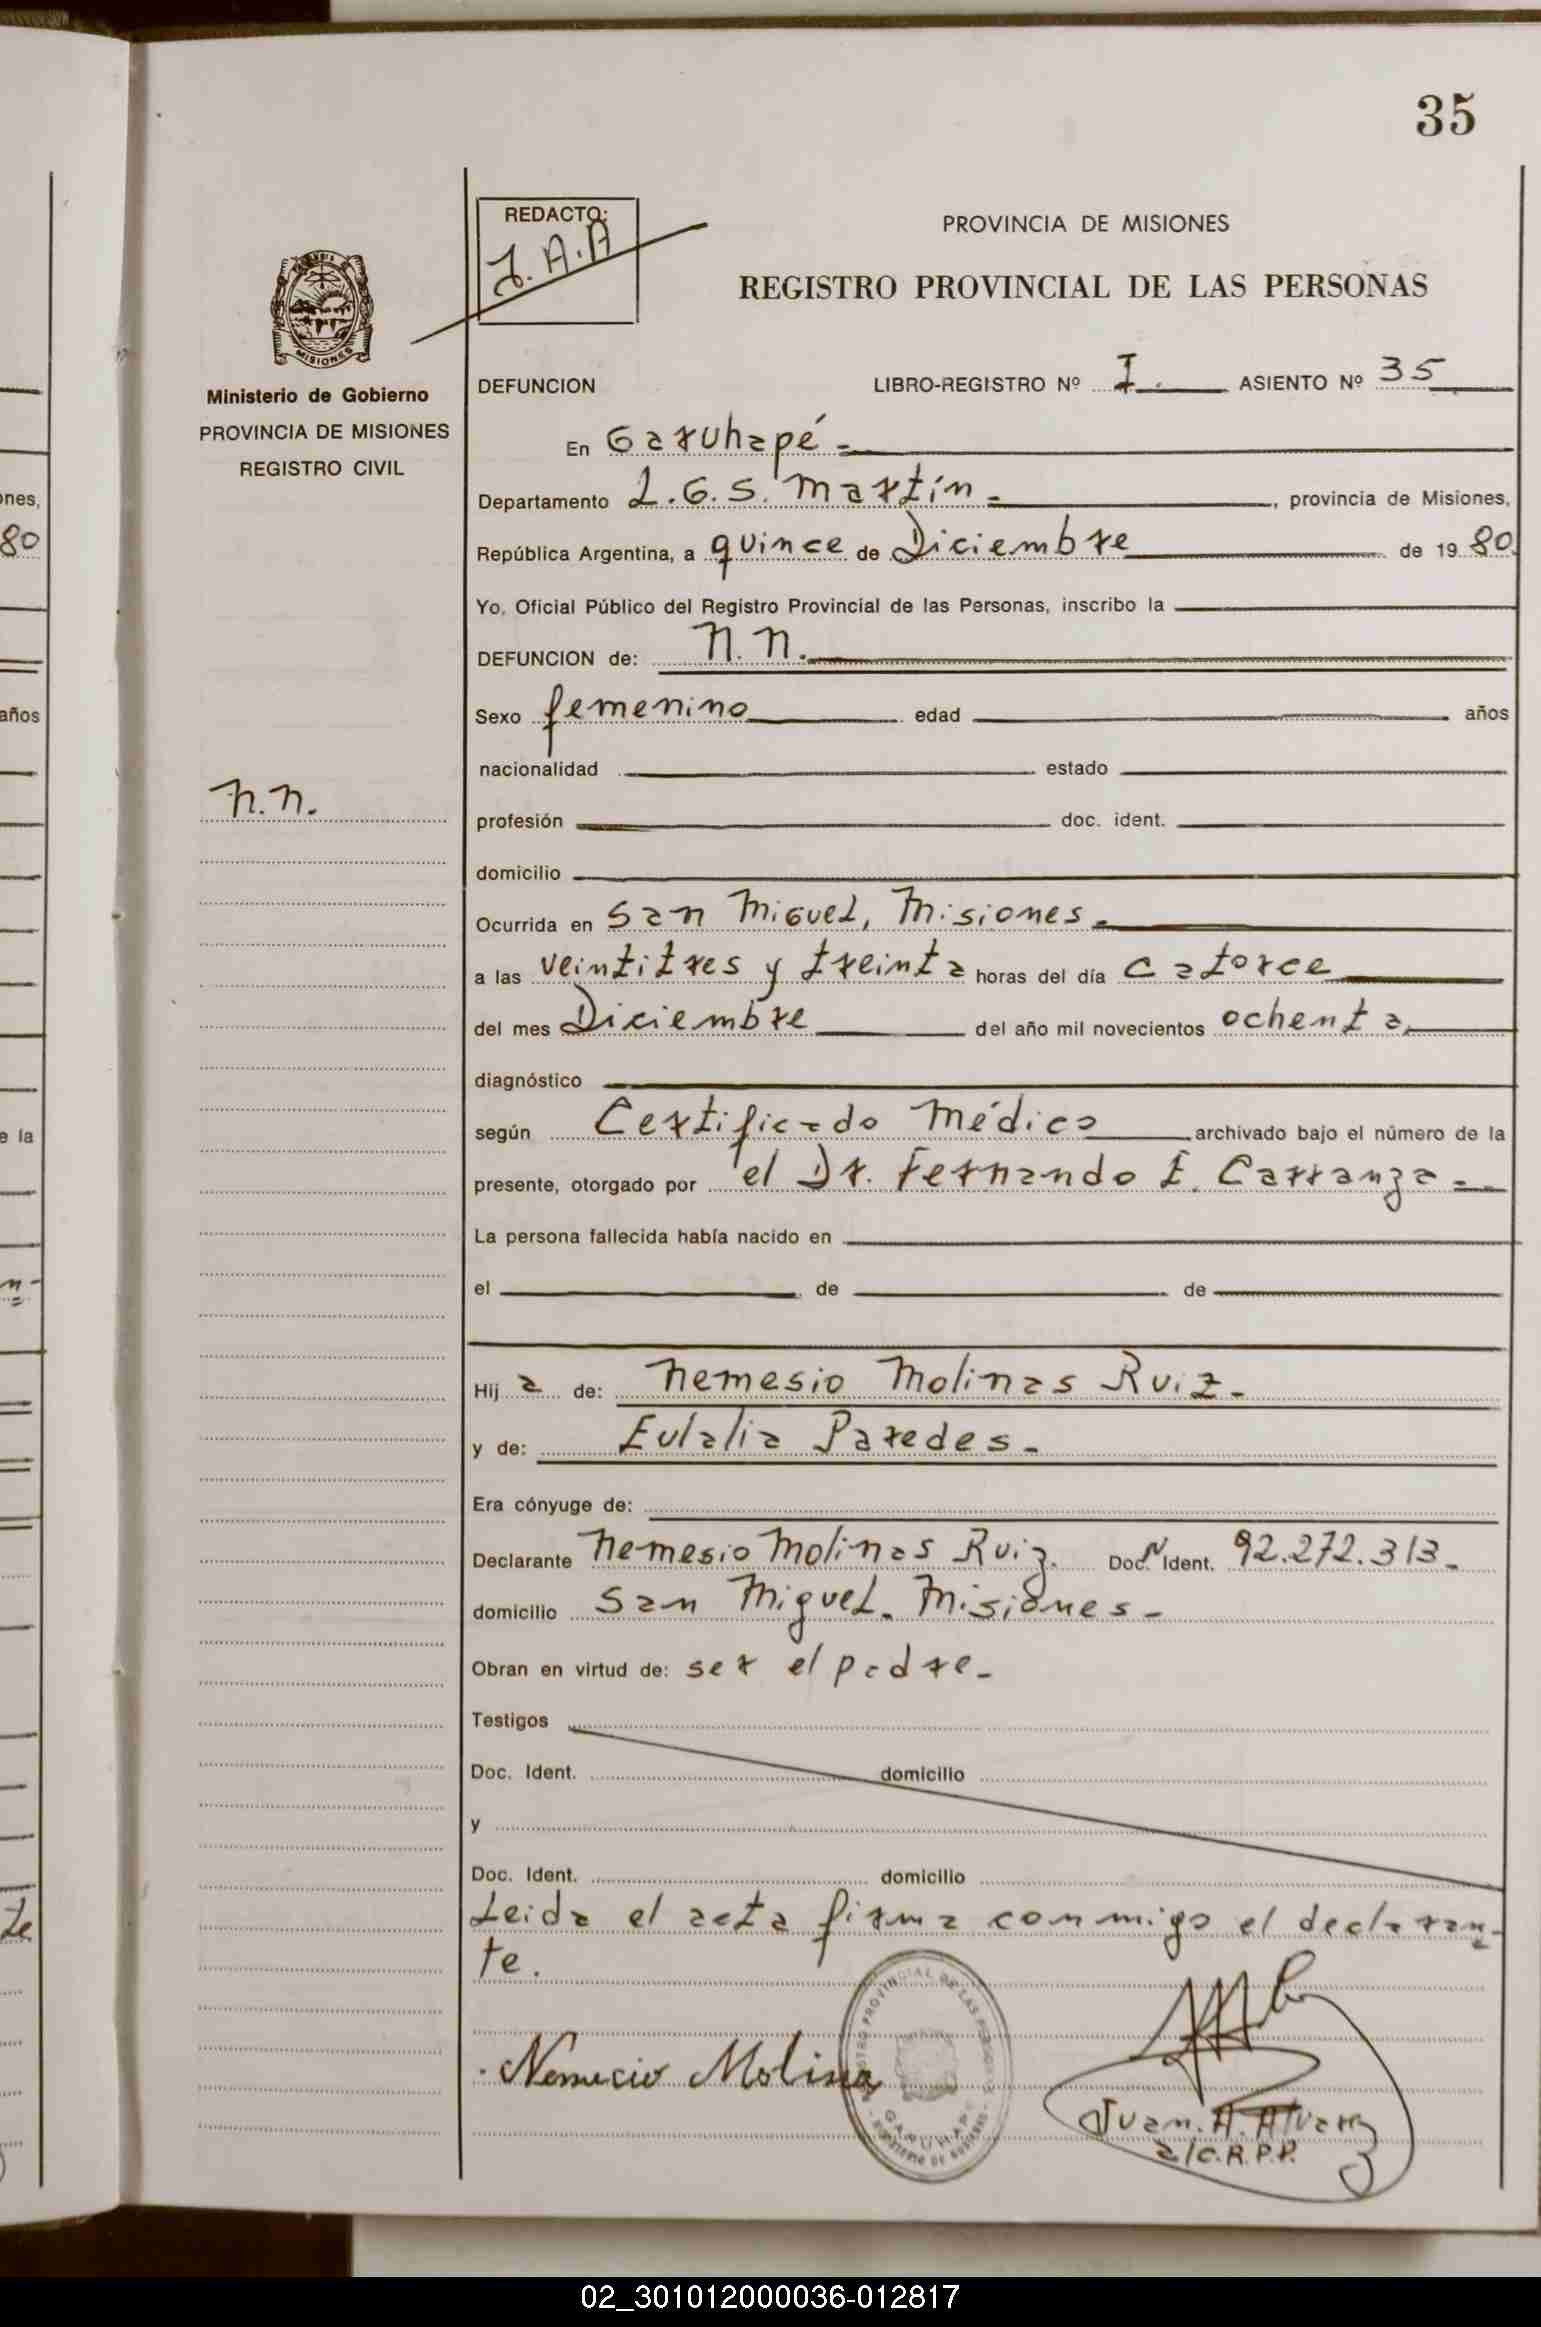 35
REDACTO:
J. A. A
PROVINCIA DE MISIONES
REGISTRO PROVINCIAL DE LAS PERSONAS
MISIONES
Ministerio de Gobierno
PROVINCIA DE MISIONES
REGISTRO CIVIL
DEFUNCION LIBRO-REGISTRO Nº I. ASIENTO Nº 35
En Garuhapé -
Departamento L.G.S. Martín - , provincia de Misiones,
República Argentina, a quince de Diciembre de 1980
Yo, Oficial Público del Registro Provincial de las Personas, inscribo la
DEFUNCION de: N.N.
Sexo femenino edad años
nacionalidad estado
N.N.
profesión doc. ident.
domicilio
Ocurrida en San Miguel, Misiones -
a las veintitres y treinta horas del día catorce
del mes Diciembre del año mil novecientos ochenta,
diagnóstico
según Certificado Médico archivado bajo el número de la
presente, otorgado por el Dr. Fernando E. Carranza -
La persona fallecida había nacido en
el de de
Hij a de: Nemesio Molinas Ruiz -
y de: Eulalia Paredes -
Era cónyuge de:
Declarante Nemesio Molinas Ruiz. Doc. N Ident. 92.272.313 -
domicilio San Miguel. Misiones -
Obran en virtud de: ser el padre -
Testigos
Doc. Ident. domicilio
y
Doc. Ident. domicilio
Leida el acta firma conmigo el declaran-
te.
Nemecio Molina
REGISTRO PROVINCIAL DE LAS PERSONAS
GARUHAPE
Juan. A. Alvarez
a/C.R.P.P.
ones,
80
años
e la
n-
te
02_301012000036-012817